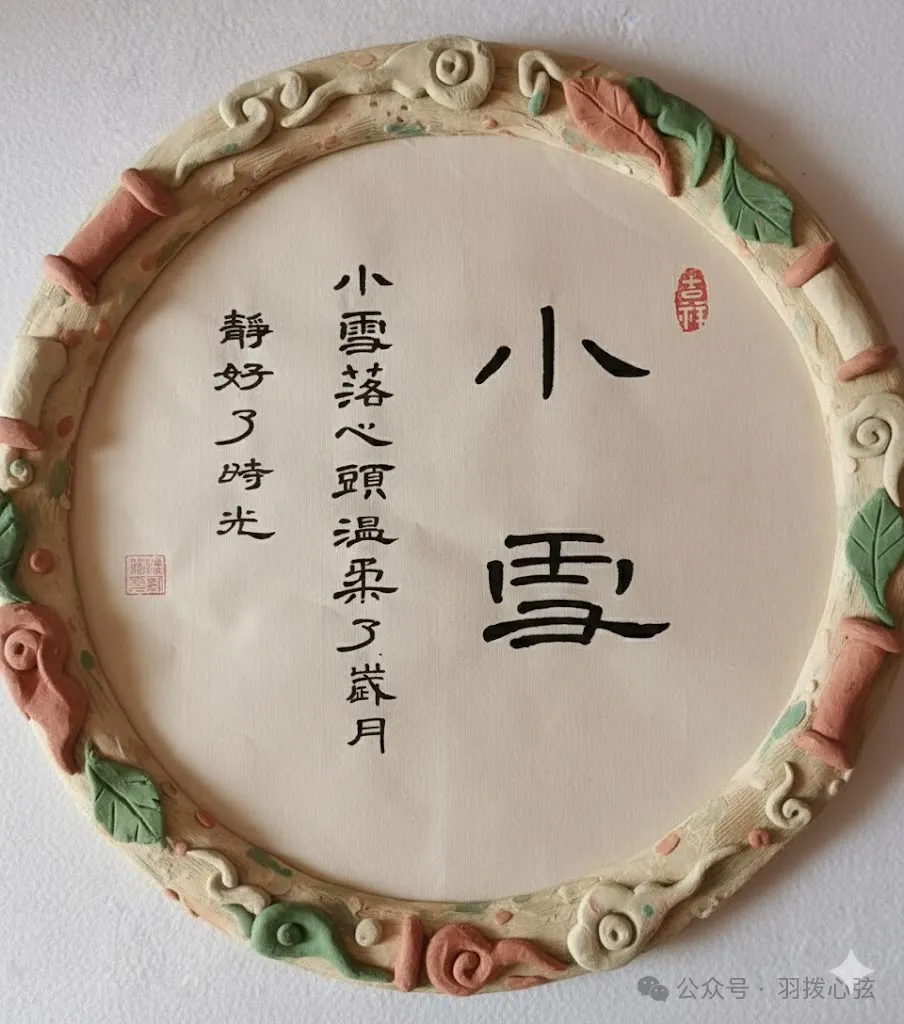 吉祥
小雪
小雪落心頭温柔了歲月
靜好了時光
公众号·羽拨心弦